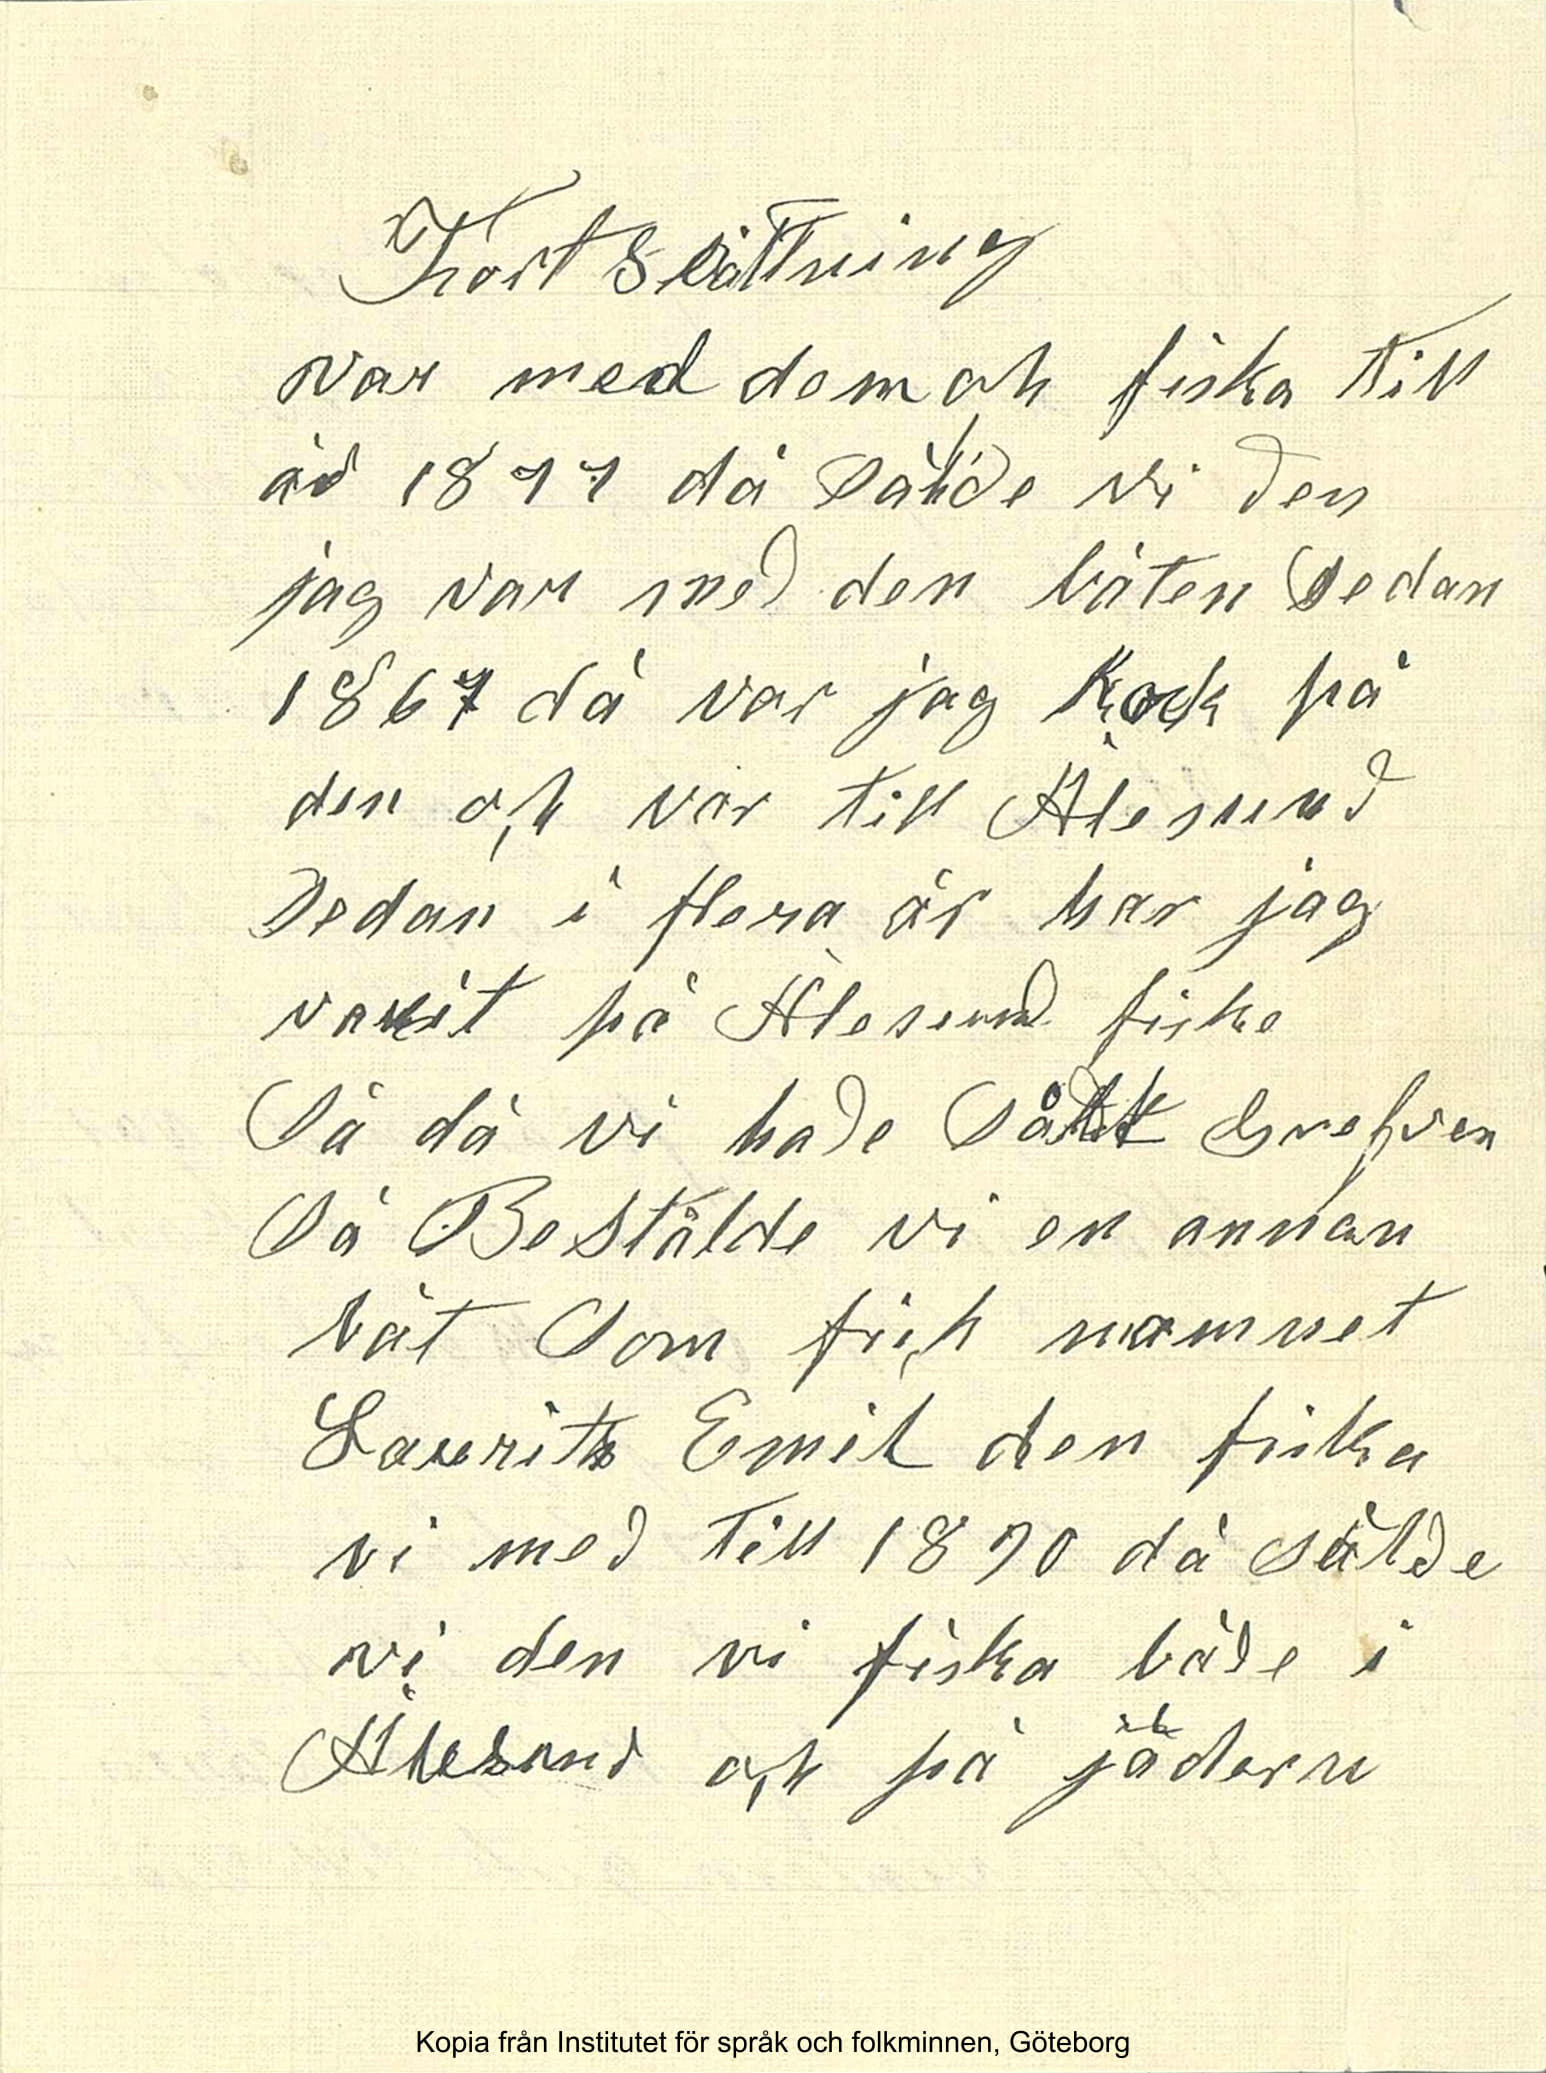 Fortsättning
var med dem och fiska till
år 1877 då sålde vi den
jag var med den båten Sedan
1867 då var jag Kock på
den och var till Ålesund
Sedan i flera år har jag
varit på Ålesund fiske
Så då vi hade Sålt Grefven
Så Bestälde vi en annan
båt Som fick namnet
Laurits Emil den fiska
vi med till 1890 då sålde
vi den vi fiska både i
Ålesund och på jädern
Kopia från Institutet för språk och folkminnen, Göteborg